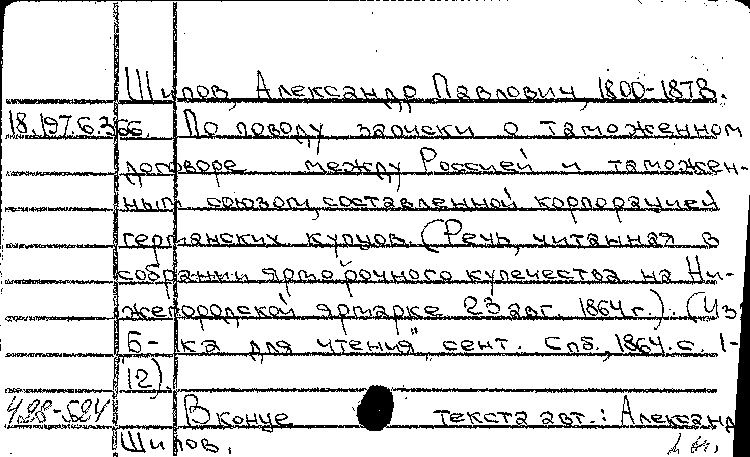 Шипов, Александр Павлович, 1800-1878.
18.197.6.366. По поводу записки о таможенном
договоре между Россией и таможен-
ным союзом, составленной корпорацией
германских купцов. (Речь, читанная в
собрании ярмарочного купечества на Ни-
жегородской ярмарке 23 авг. 1864 г.). (Из
Б-ка для чтения", сент. Спб., 1864. с. 1-
12).
498-524 В конце текста авт.: Александр
Шипов.